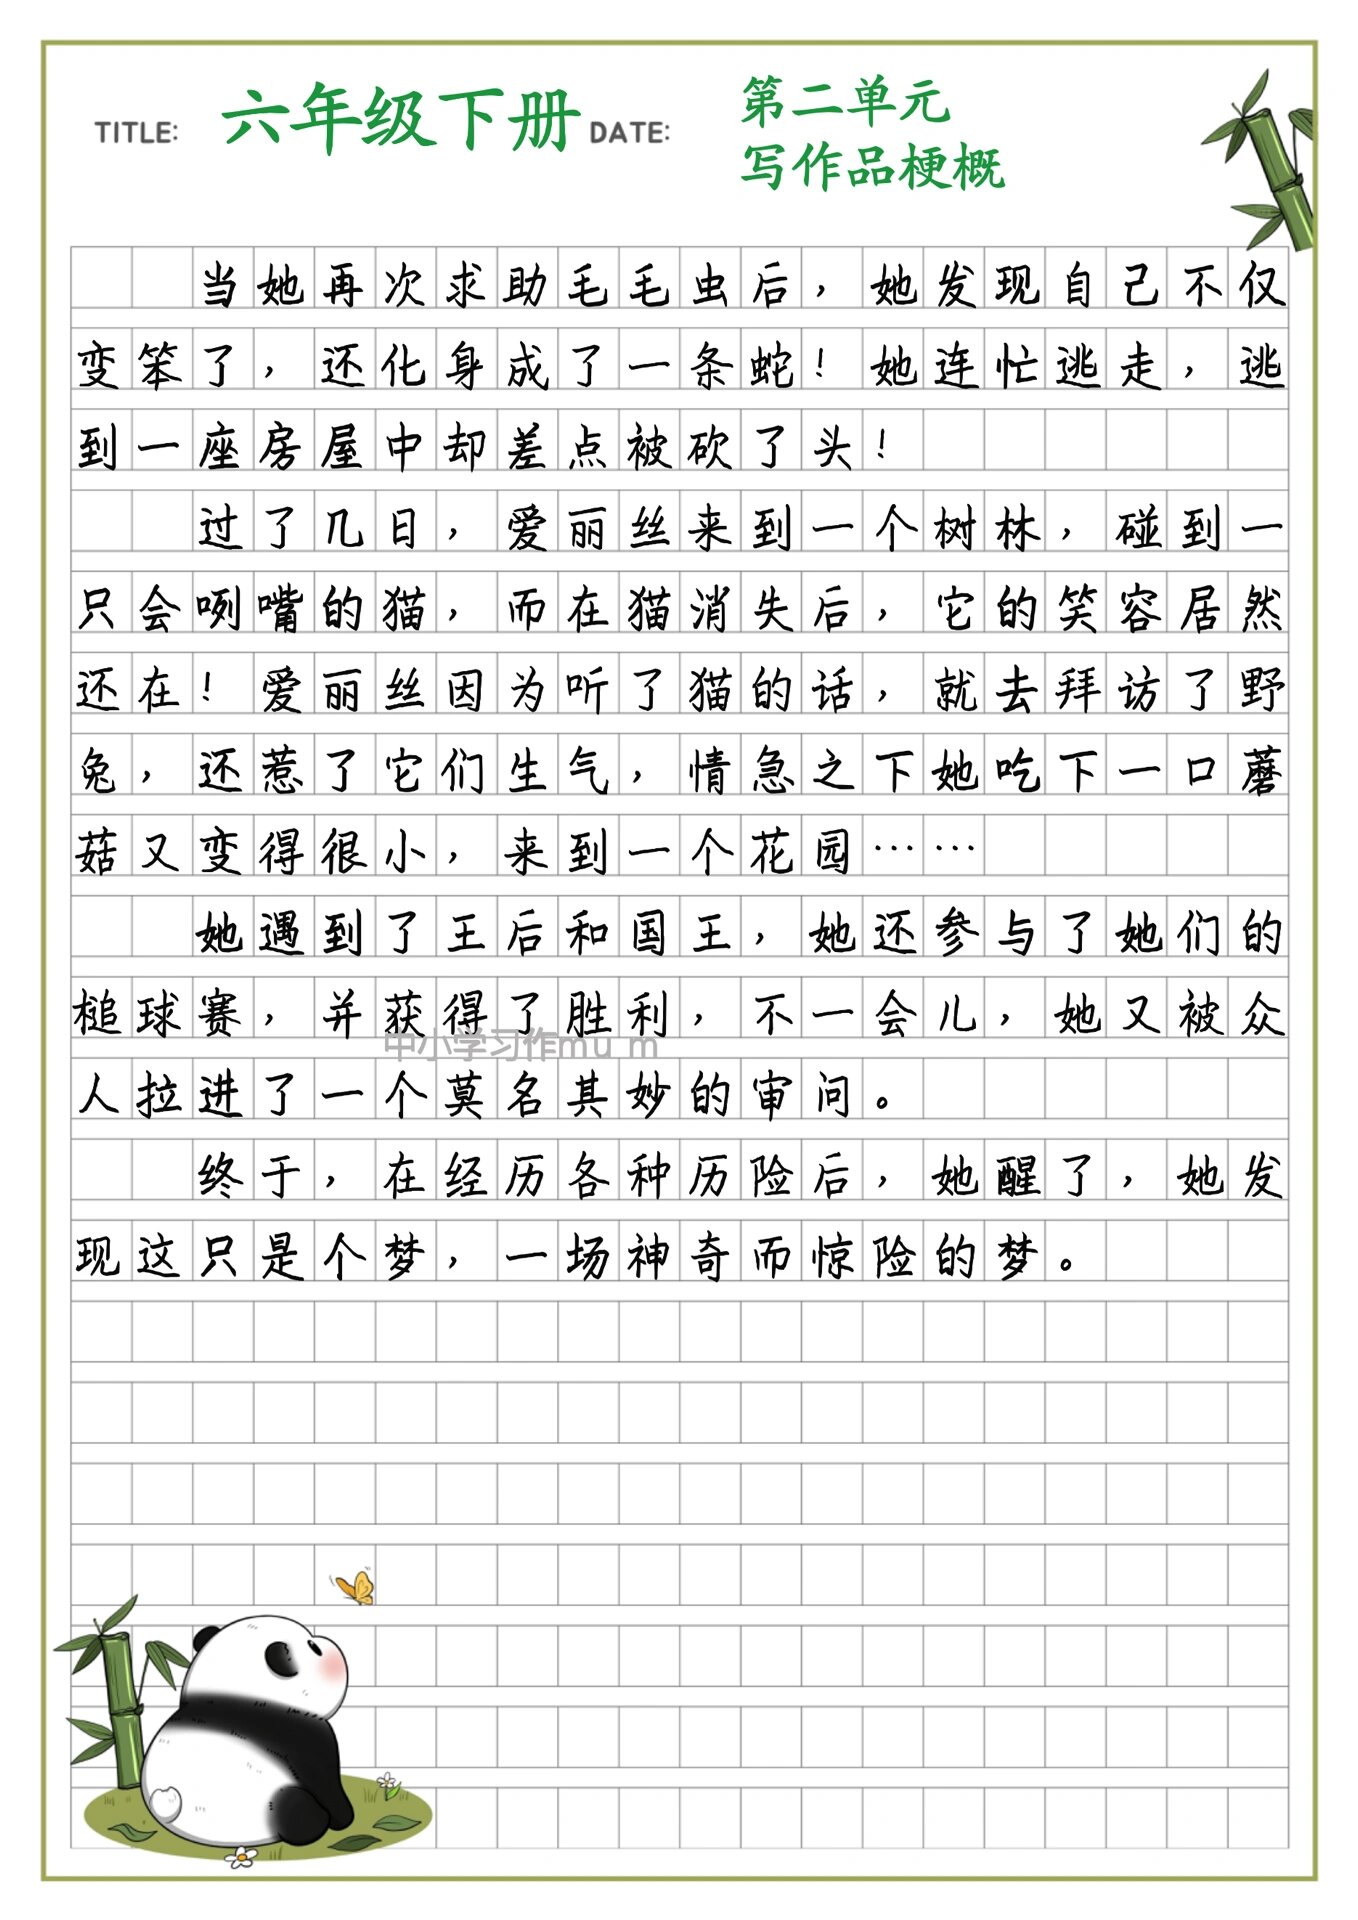 TITLE: 六年级下册 DATE: 第二单元
写作品梗概
当她再次求助毛毛虫后，她发现自己不仅
变笨了，还化身成了一条蛇！她连忙逃走，逃
到一座房屋中却差点被砍了头！
过了几日，爱丽丝来到一个树林，碰到一
只会咧嘴的猫，而在猫消失后，它的笑容居然
还在！爱丽丝因为听了猫的话，就去拜访了野
兔，还惹了它们生气，情急之下她吃下一口蘑
菇又变得很小，来到一个花园……
她遇到了王后和国王，她还参与了她们的
槌球赛，并获得了胜利，不一会儿，她又被众
中小学习作mu m
人拉进了一个莫名其妙的审问。
终于，在经历各种历险后，她醒了，她发
现这只是个梦，一场神奇而惊险的梦。